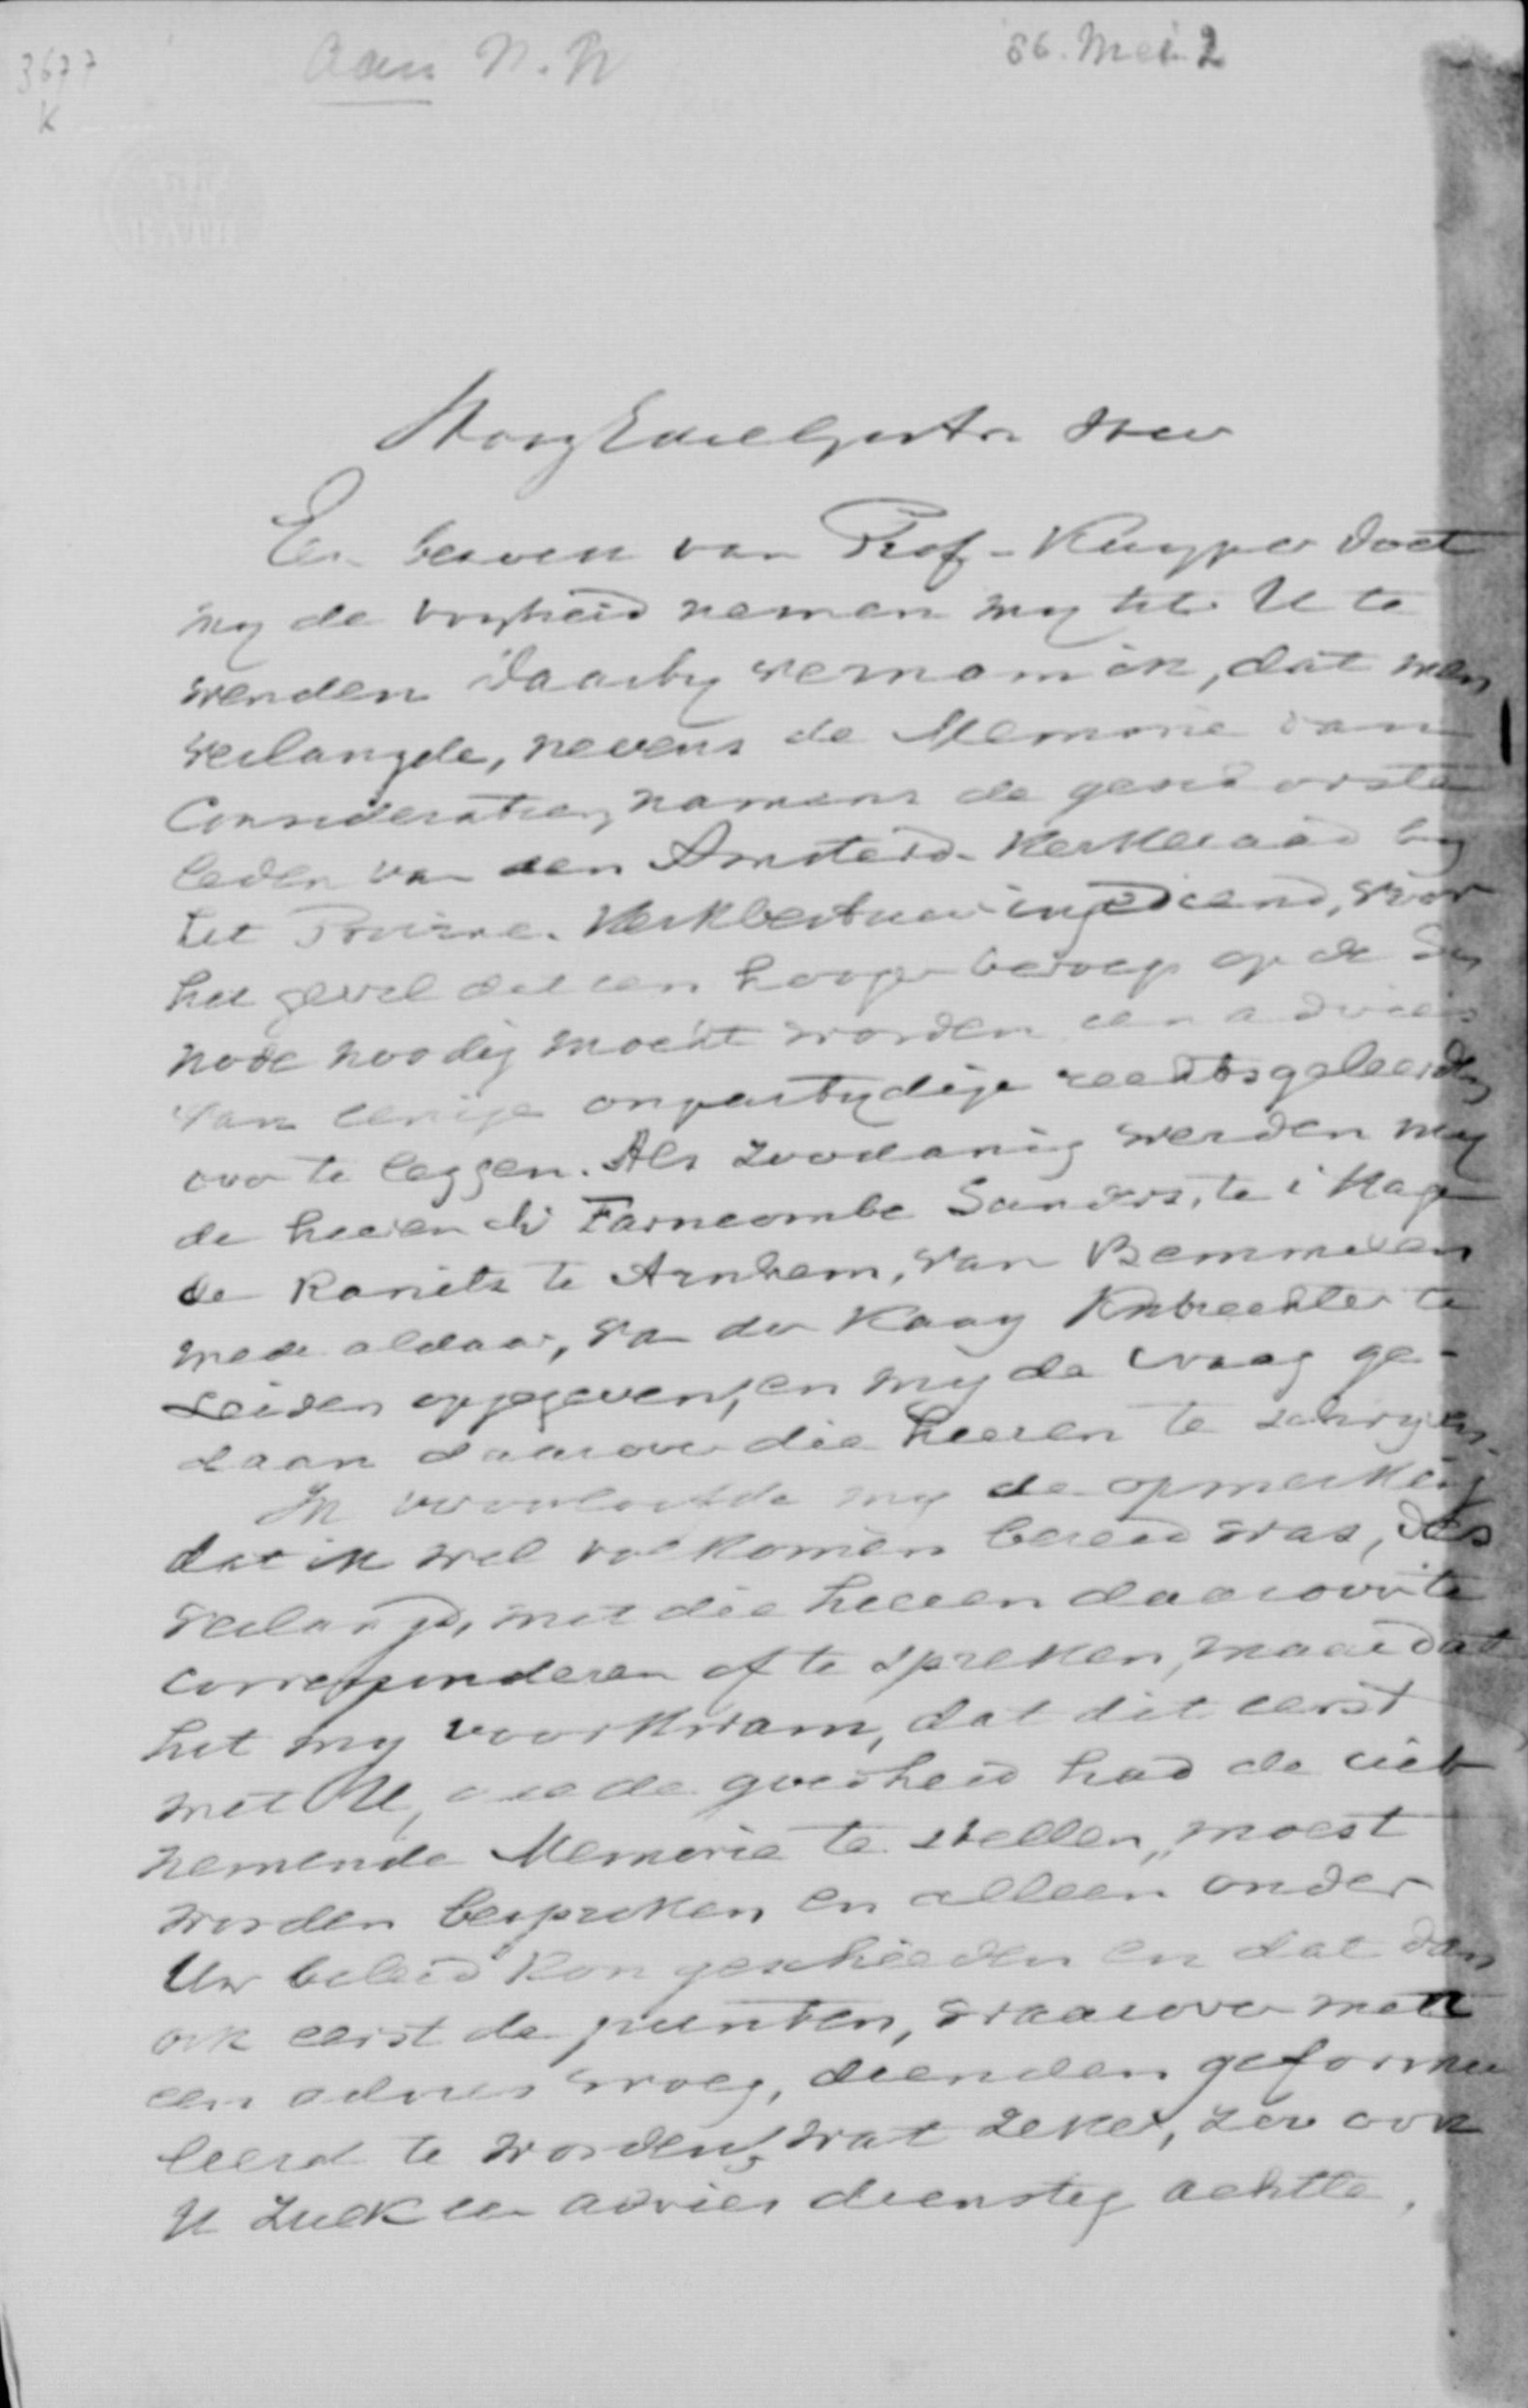 3677
K
Aan N.N
86. Mei. 2
HoogEdelGestr Heer
Een bezoek van Prof. Kuyper doet
my de vryheid nemen my tot U te
wenden Daarby vernam ik, dat men
verlangde, nevens de Memorie van
Consideratien, namens de geschorste
leden van den Amsterd. Kerkeraad by
het Provinc. Kerkbestuur ingediend, voor
het geval dat een hooger beroep op de Sy
node noodig mocht worden een advies
van eenige onpartydige rechtsgeleerden
over te leggen. Als zoodanig werden my
de heeren Farncombe Sanders, te 's Hage
de Ranitz te Arnhem, van Bemmelen
mede aldaar, van der Kaay te
Leiden opgegeven, en my de vraag ge-
daan daarover die heeren te schryven.
Ik veroorloofde my de opmerking
dat ik wel volkomen bereid was, des
verlangd, met die heeren daarover te
correspondeeren of te spreken, maar dat
het my voorkwam, dat dit eerst
met U, die de goedheid had de uit
nemende Memorie te stellen, moest
worden besproken en alleen onder
Uw beleid kon geschieden en dat dan
ook eerst de punten, waarover men
een advies vroeg, dienden geformu
leerd te worden, wat zeker, zoo ook
U zulk een advies dienstig achtte.